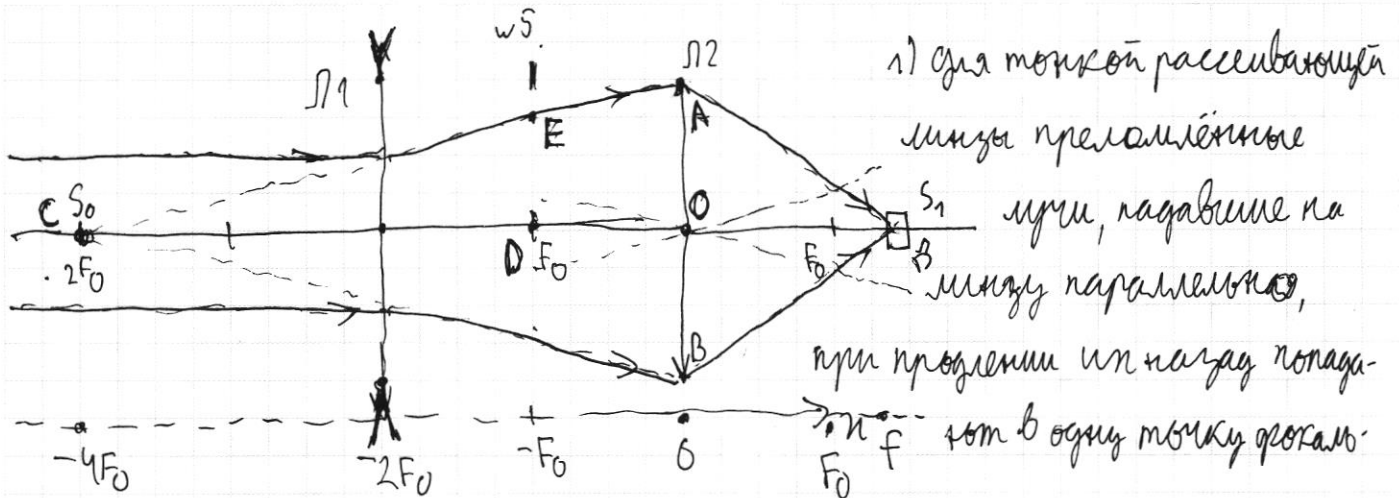 w5.
Л1
Л2
E
A
C S₀
D
F₀
O
F₀
S₁
B
. 2F₀
B
-4F₀
-2F₀
-F₀
0
F₀
x
f
1) Для тонкой рассеивающей
линзы преломлённые
лучи, падавшие на
линзу параллельно,
при продлении их назад попада-
ют в одну точку фокаль-